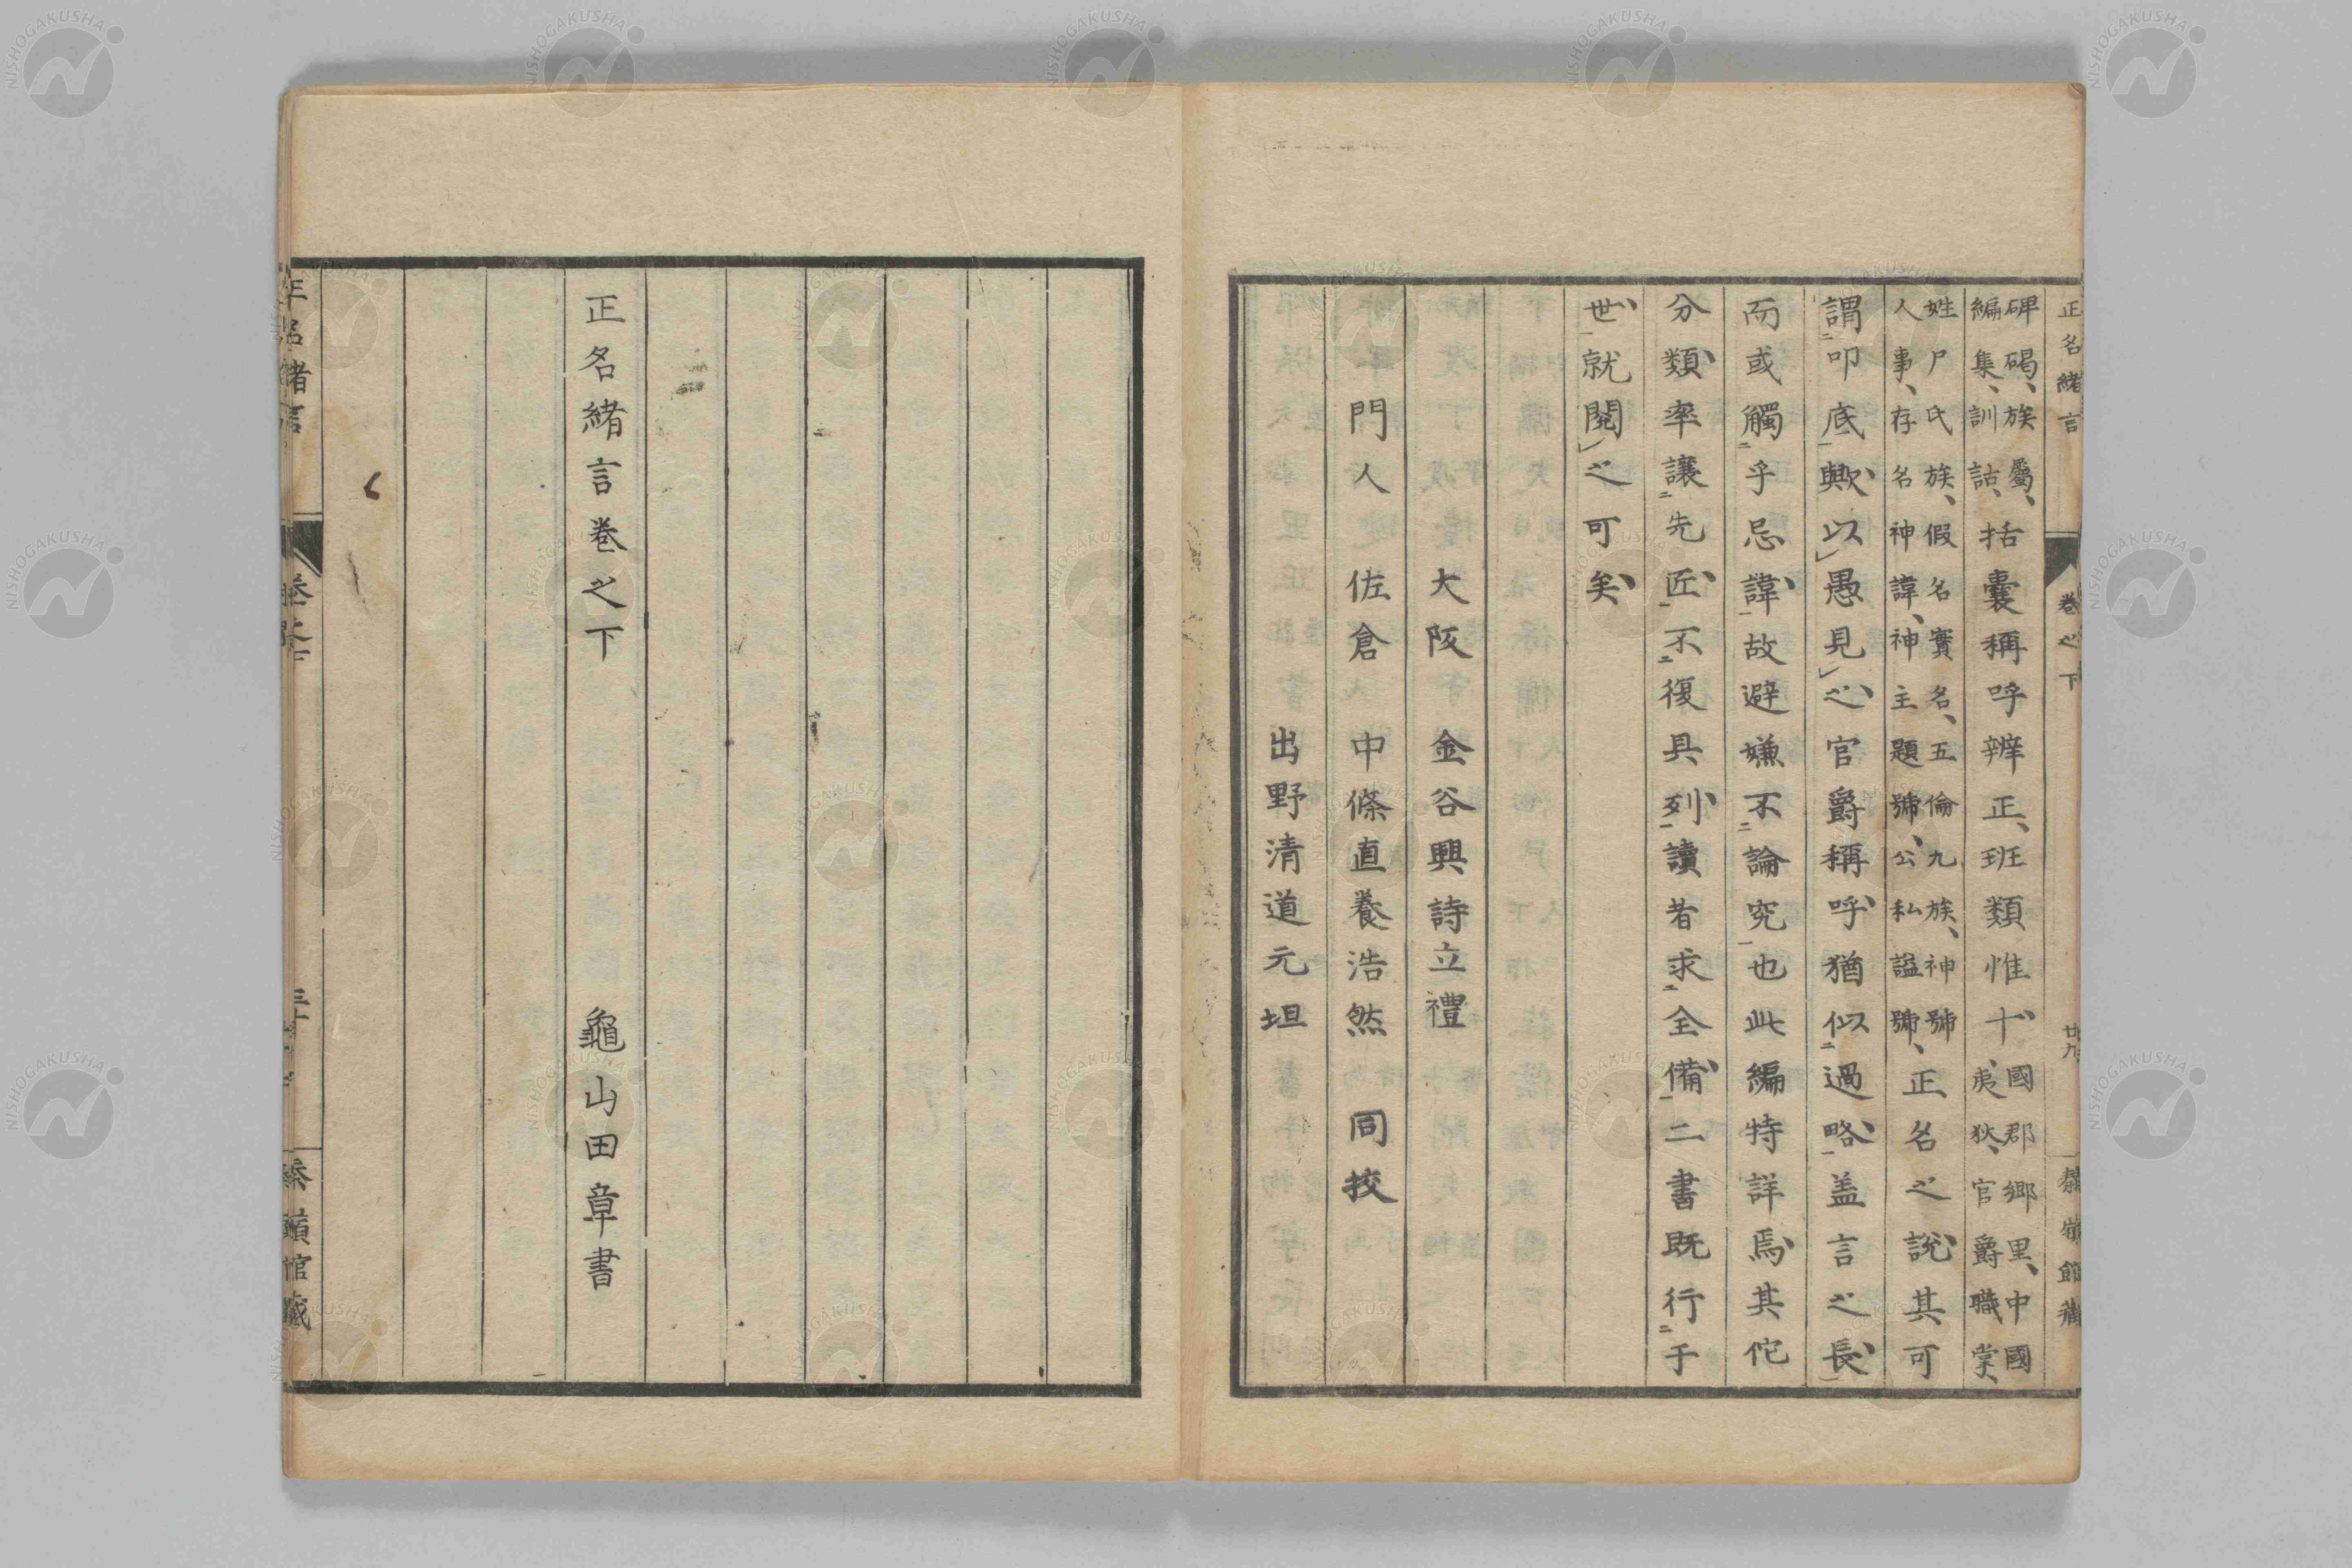 正名緒言 卷之下 廿九 㯃嶺館藏
碑碣、族屬、編集、訓詁、括囊稱呼辨正、班類惟十、國郡鄉里、中國夷狄、官爵職掌、
姓尸氏族、假名實名、五倫九族、神號人事、存名神諱、神主題號、公私謚號、正名之說其可
謂叩底歟以愚見之官爵稱呼猶似過略蓋言之長
而或觸乎忌諱故避嫌不論究也此編特詳焉其佗
分類率讓先匠不復具列讀者求全備二書既行于
世就閱之可矣
大阪 金谷興詩立禮
門人 佐倉 中條直養浩然 同挍
出野清道元坦
正名緒言卷之下 龜山田章書
正名緒言 嶺館藏
NISHOGAKUSHA